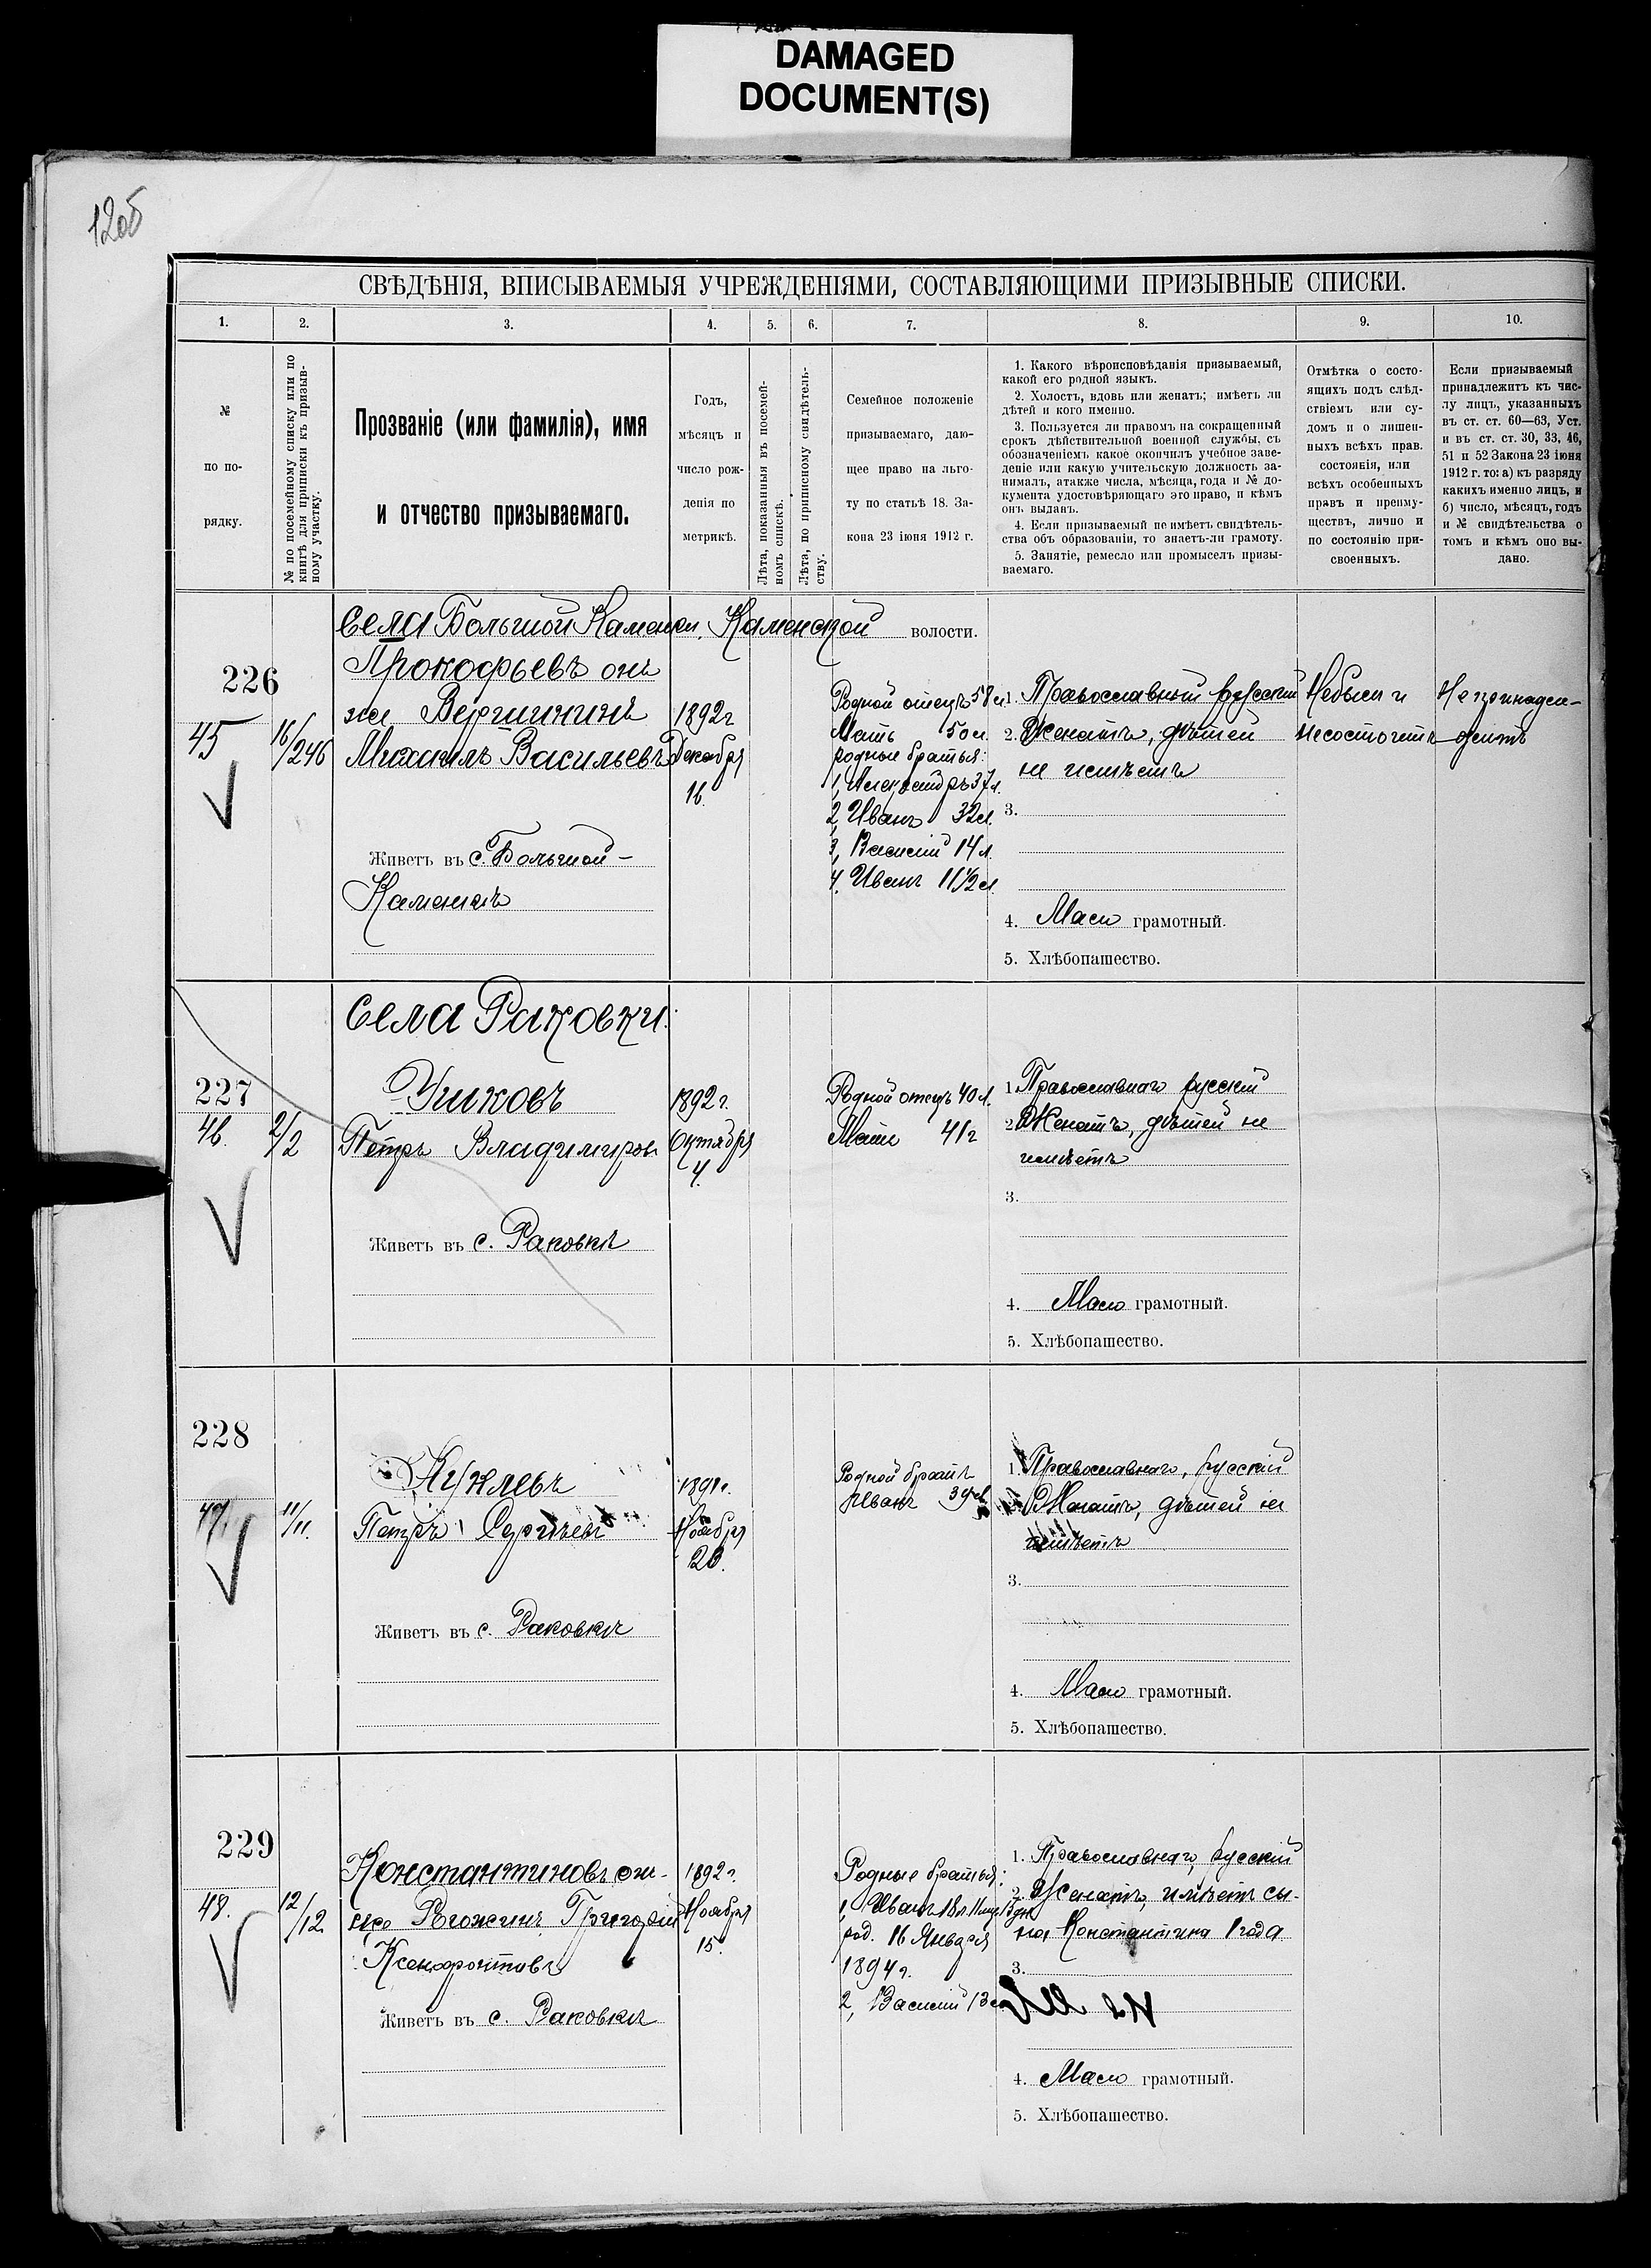 DAMAGED
DOCUMENT(S)
120б
СВѢДѢНІЯ, ВПИСЫВАЕМЫЯ УЧРЕЖДЕНІЯМИ, СОСТАВЛЯЮЩИМИ ПРИЗЫВНЫЕ СПИСКИ.
1. 2. 3. 4. 5. 6. 7. 8. 9. 10.
№
по по-
рядку.
№ по посемейному списку или по
книгѣ для приписки къ призыв-
ному участку.
Прозваніе (или фамилія), имя
и отчество призываемаго.
Годъ,
мѣсяцъ и
число рож-
денія по
метрикѣ.
Лѣта, показанныя въ посемей-
номъ спискѣ.
Лѣта, по приписному свидѣтель-
ству.
Семейное положеніе
призываемаго, даю-
щее право на льго-
ту по статьѣ 18. За-
кона 23 іюня 1912 г.
1. Какого вѣроисповѣданія призываемый,
какой его родной языкъ.
2. Холостъ, вдовъ или женатъ; имѣетъ ли
дѣтей и кого именно.
3. Пользуется ли правомъ на сокращенный
срокъ дѣйствительной военной службы, съ
обозначеніемъ какое окончилъ учебное заве-
деніе или какую учительскую должность за-
нималъ, атакже числа, мѣсяца, года и № до-
кумента удостовѣряющаго это право, и кѣмъ
онъ выданъ.
4. Если призываемый не имѣетъ свидѣтель-
ства объ образованіи, то знаетъ-ли грамоту.
5. Занятіе, ремесло или промыселъ призы-
ваемаго.
Отмѣтка о состо-
ящихъ подъ слѣд-
ствіемъ или су-
домъ и о лишен-
ныхъ всѣхъ прав.
состоянія, или
всѣхъ особенныхъ
правъ и преиму-
ществъ, лично и
по состоянію при-
своенныхъ.
Если призываемый
принадлежитъ къ чис-
лу лицъ, указанныхъ
въ ст. ст. 60—63, Уст.
и въ ст. ст. 30, 33, 46,
51 и 52 Закона 23 іюня
1912 г. то: а) къ разряду
какихъ именно лицъ, и
б) число, мѣсяцъ, годъ
и № свидѣтельства о
томъ и кѣмъ оно вы-
дано.
Села Большой Каменки, Каменской волости.
226
45
16/246
Прокофьевъ онъ
же Вершининъ
Михаилъ Васильевъ
Живетъ въ с. Большой-
Каменкѣ
1892 г
Декабря
16.
Родной отецъ 58 л
Мать 50 л.
родные братья:
1, Александръ 37 л.
2, Иванъ 32 л.
3, Василій 14 л.
4, Иванъ 11½ л.
1. Православный русскій
2. Женатъ, дѣтей
не имѣетъ
3.
4. Мало грамотный.
5. Хлѣбопашество.
Небылъ и
несостоитъ
Непринадле-
житъ
Села Раковки:
227
46.
2/2
Учиковъ
Петръ Владимировъ
Живетъ въ с. Раковкѣ
1892 г.
Октября
4.
Родной отецъ 40 л.
Мать 41 г
1. Православнаго русскій
2. Женатъ, дѣтей не
имѣетъ
3.
4. Мало грамотный.
5. Хлѣбопашество.
228
47.
11/11.
Куклевъ
Петръ Сергѣевъ
Живетъ въ с. Раковкѣ
1891 г.
Ноября
20.
Родной братъ
Иванъ
1. Православнаго, русскій
2. Женатъ, дѣтей не
имѣетъ
3.
4. Мало грамотный.
5. Хлѣбопашество.
229
48.
12/12
Константиновъ он-
же Рогожинъ Григорій
Ксенофонтовъ
Живетъ въ с. Раковкѣ
1892 г.
Ноября
15.
Родные братья:
1, Иванъ 18 л. 11 мѣс.
род. 16 Января
1894 г.
2, Василій 13 л
1. Православнаго, русскій
2. Женатъ, имѣетъ сы-
на, Константина 1 года
3.
4. Мало грамотный.
5. Хлѣбопашество.